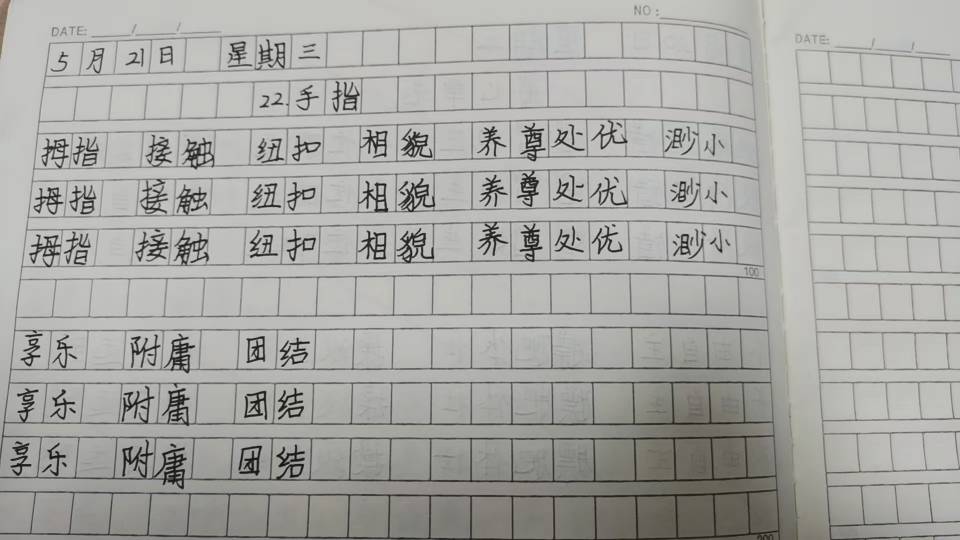 DATE: ___/___/___ NO:
5月21日 星期三
22.手指
拇指 接触 纽扣 相貌 养尊处优 渺小
拇指 接触 纽扣 相貌 养尊处优 渺小
拇指 接触 纽扣 相貌 养尊处优 渺小
100
享乐 附庸 团结
享乐 附庸 团结
享乐 附庸 团结
200
DATE: ___/___/___